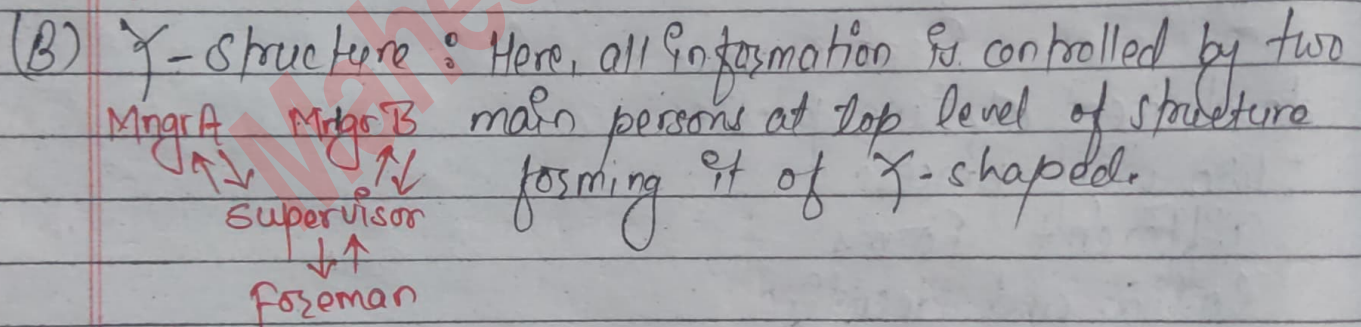 (B) Y-Structure : Here, all information is controlled by two
MngrA MngrB main persons at top level of structure
forming it of Y-shaped.
Supervisor
Foreman